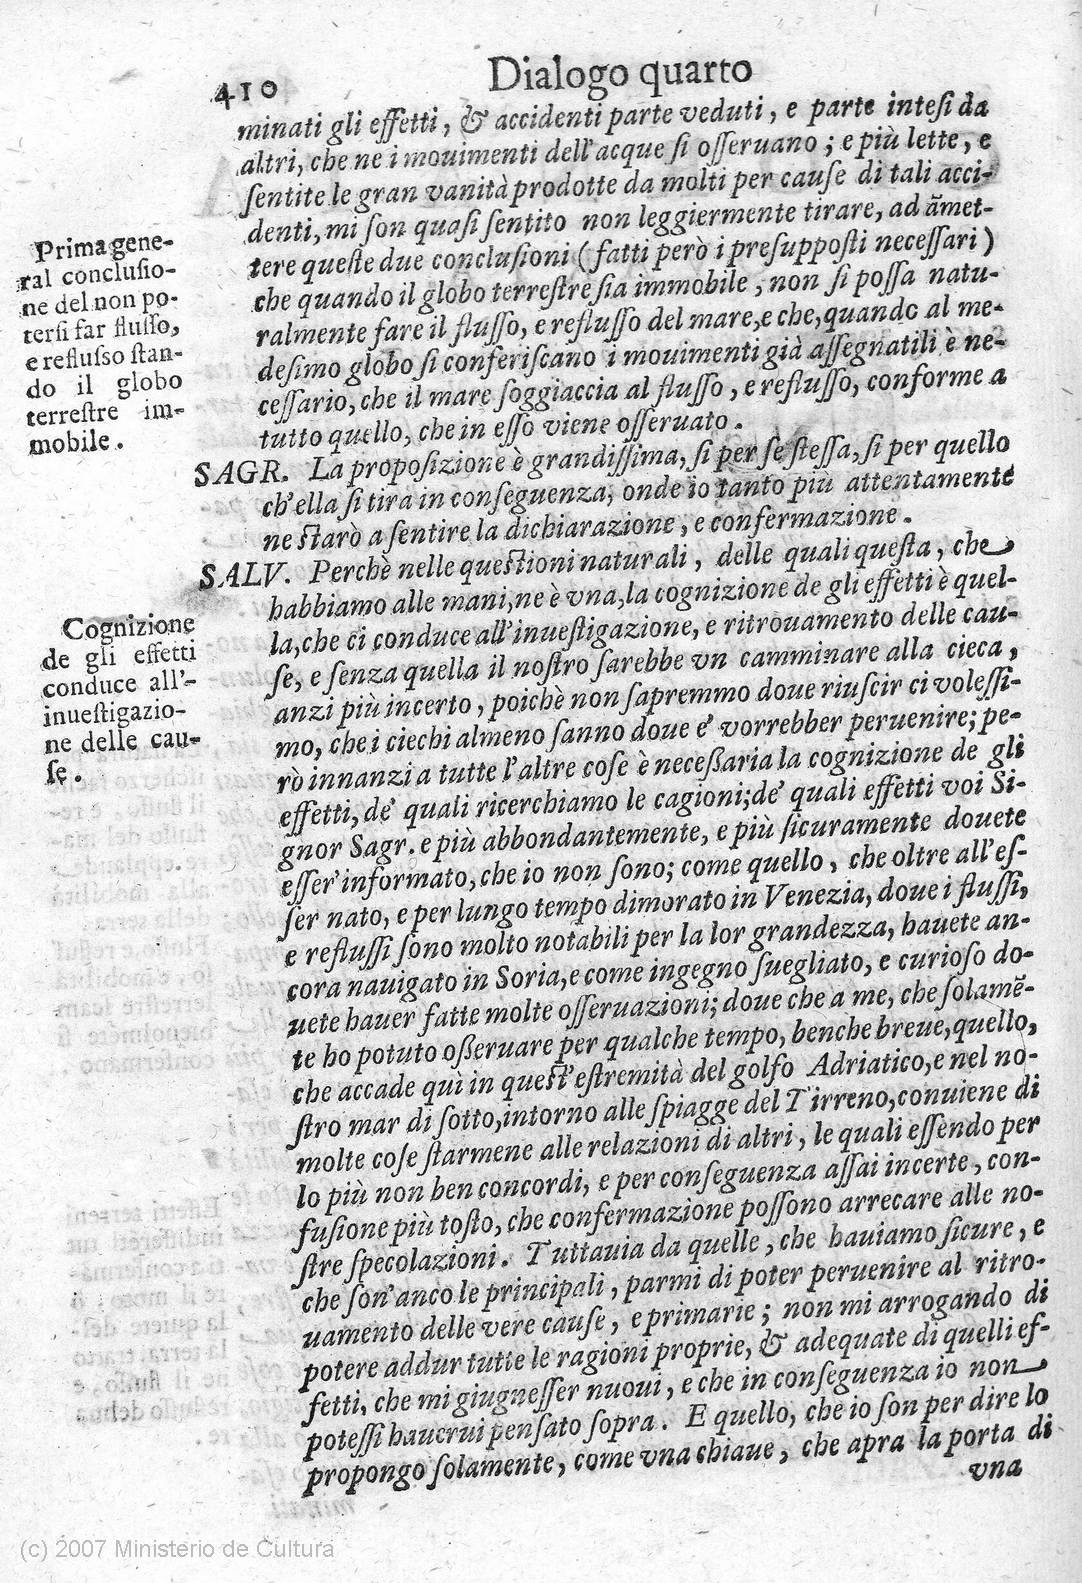 410
Dialogo quarto
minati gli effetti, & accidenti parte veduti, e parte intesi da
altri, che ne i mouimenti dell'acque si osseruano; e più lette, e
sentite le gran vanità prodotte da molti per cause di tali acci-
denti, mi son quasi sentito non leggiermente tirare, ad ãmet-
tere queste due conclusioni (fatti però i presupposti necessari)
che quando il globo terrestre sia immobile, non si possa natu-
ralmente fare il flusso, e reflusso del mare, e che, quando al me-
desimo globo si conferiscano i mouimenti già assegnatili è ne-
cessario, che il mare soggiaccia al flusso, e reflusso, conforme a
tutto quello, che in esso viene osseruato.
Prima gene-
ral conclusio-
ne del non po-
tersi far flusso,
e reflusso stan-
do il globo
terrestre im-
mobile.
SAGR. La proposizione è grandissima, sì per se stessa, sì per quello
ch'ella si tira in conseguenza, onde io tanto più attentamente
ne starò a sentire la dichiarazione, e confermazione.
SALV. Perchè nelle questioni naturali, delle quali questa, che
habbiamo alle mani, ne è vna, la cognizione de gli effetti è quel-
la, che ci conduce all'inuestigazione, e ritrouamento delle cau-
se, e senza quella il nostro sarebbe vn camminare alla cieca,
anzi più incerto, poichè non sapremmo doue riuscir ci volessi-
mo, che i ciechi almeno sanno doue e' vorrebber peruenire; pe-
rò innanzi a tutte l'altre cose è necessaria la cognizione de gli
effetti, de' quali ricerchiamo le cagioni; de' quali effetti voi Si-
gnor Sagr. e più abbondantemente, e più sicuramente douete
esser' informato, che io non sono; come quello, che oltre all'es-
ser nato, e per lungo tempo dimorato in Venezia, doue i flussi,
e reflussi sono molto notabili per la lor grandezza, hauete an-
cora nauigato in Soria, e come ingegno suegliato, e curioso do-
uete hauer fatte molte osseruazioni; doue che a me, che solamẽ-
te ho potuto osseruare per qualche tempo, benche breue, quello,
che accade quì in quest'estremità del golfo Adriatico, e nel no-
stro mar di sotto, intorno alle spiagge del Tirreno, conuiene di
molte cose starmene alle relazioni di altri, le quali essendo per
lo più non ben concordi, e per conseguenza assai incerte, con-
fusione più tosto, che confermazione possono arrecare alle no-
stre specolazioni. Tuttauia da quelle, che hauiamo sicure, e
che son' anco le principali, parmi di poter peruenire al ritro-
uamento delle vere cause, e primarie; non mi arrogando di
potere addur tutte le ragioni proprie, & adequate di quelli ef-
fetti, che mi giugnesser nuoui, e che in conseguenza io non
potessi hauerui pensato sopra. E quello, che io son per dire lo
propongo solamente, come vna chiaue, che apra la porta di
vna
Cognizione
de gli effetti
conduce all'-
inuestigazio-
ne delle cau-
se.
(c) 2007 Ministerio de Cultura